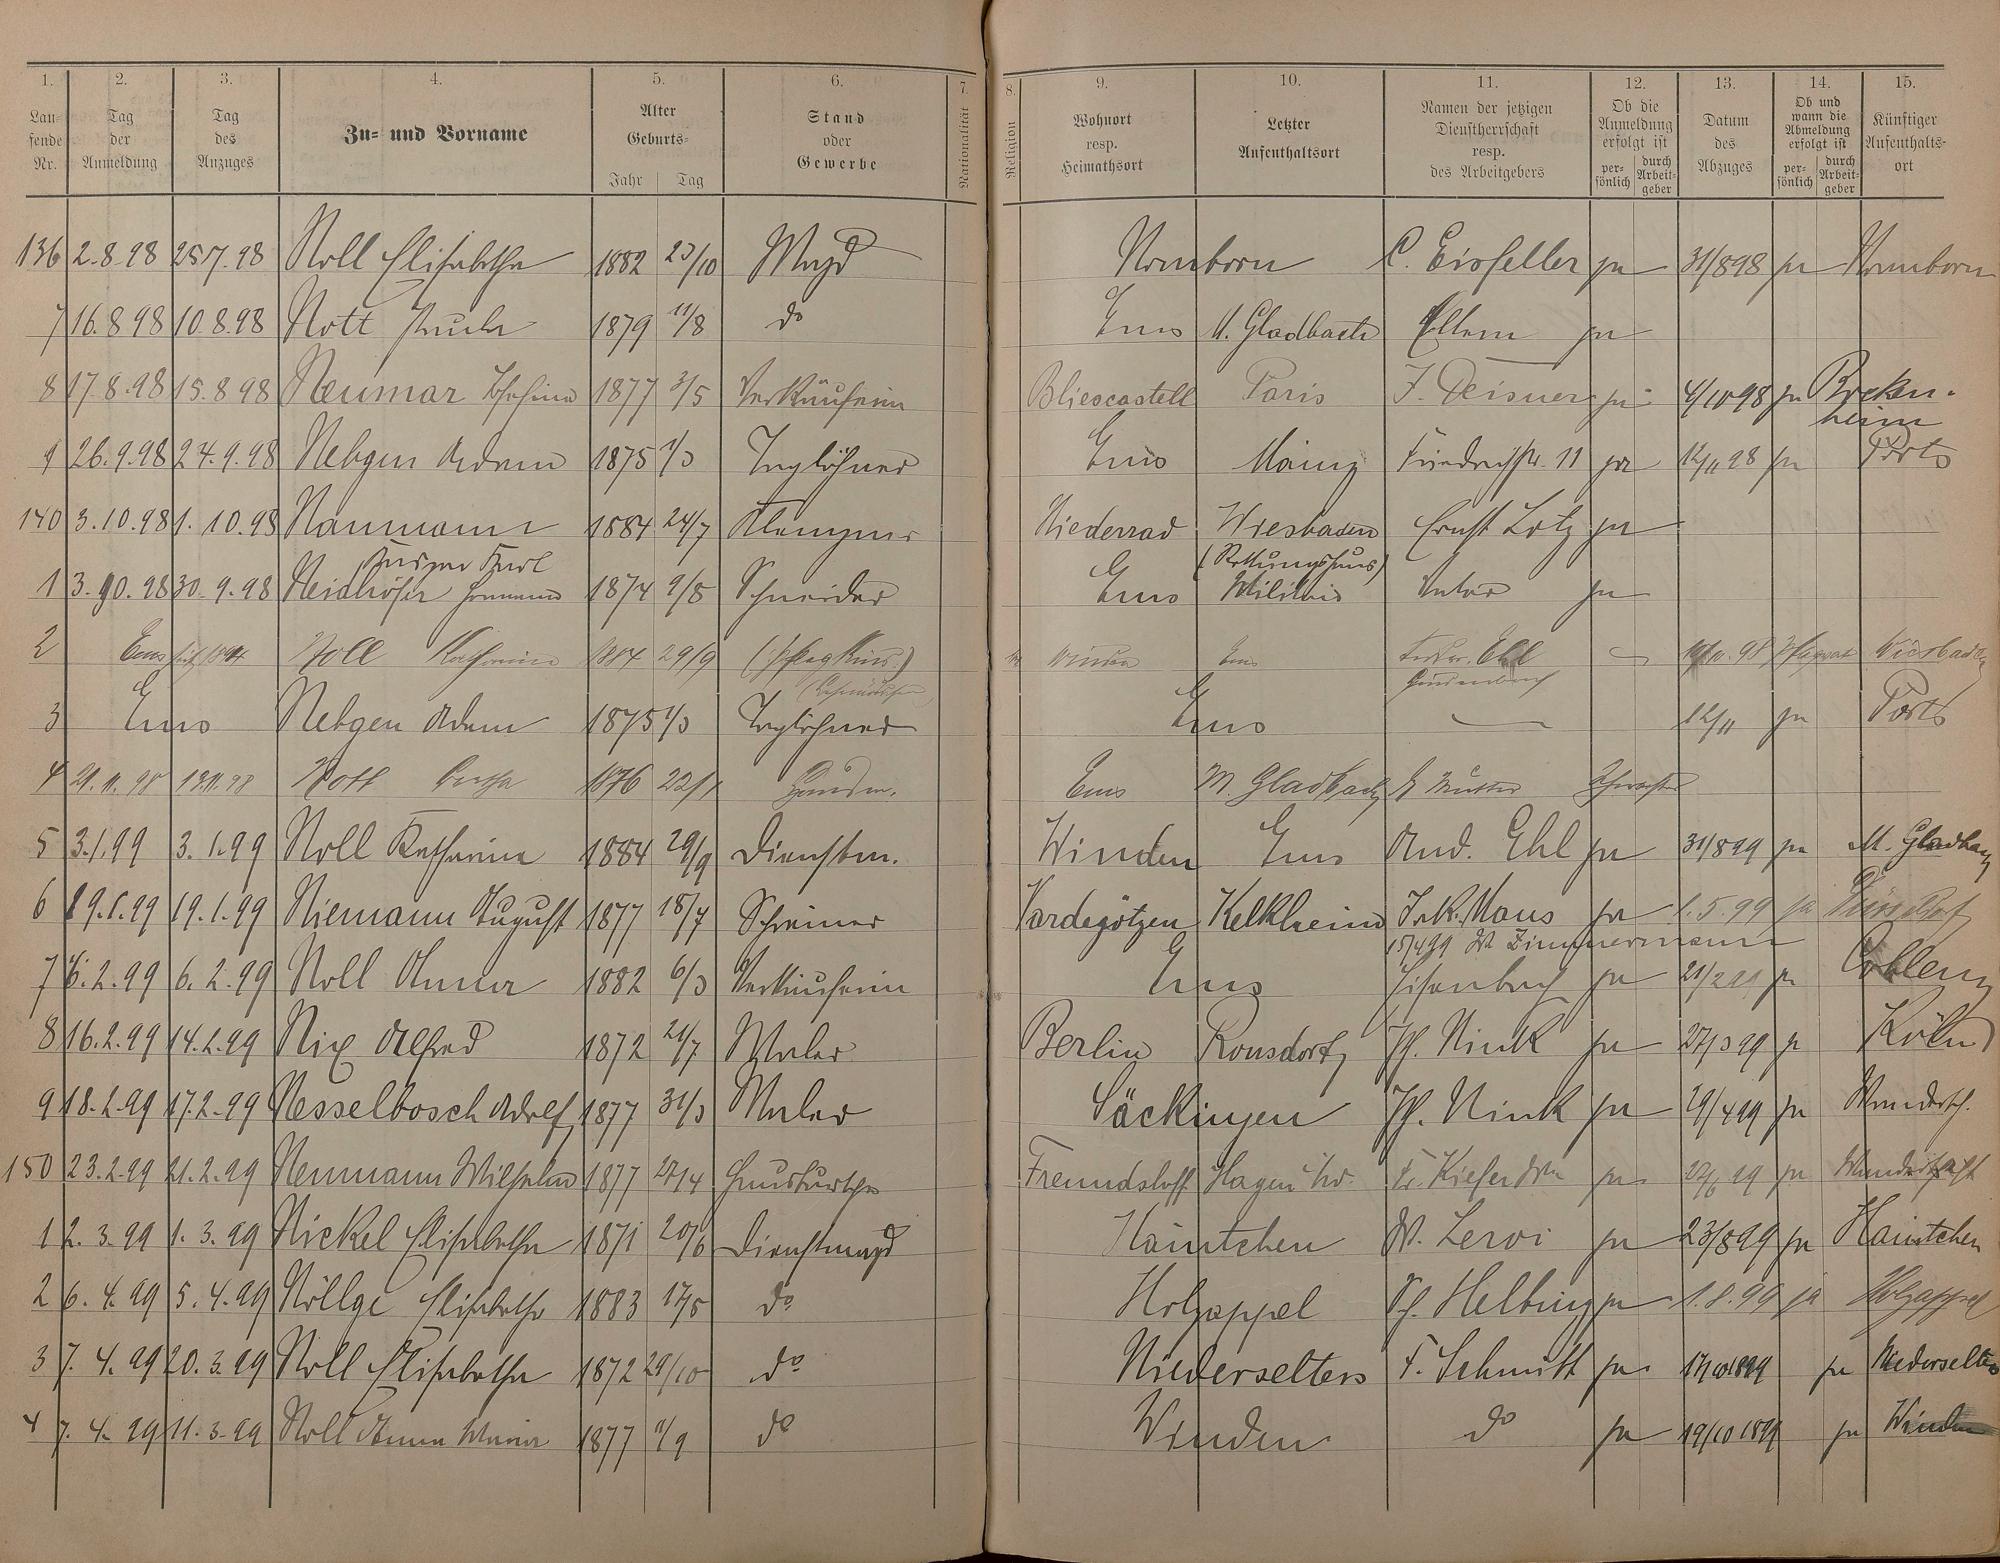 1. 2. 3. 4. 5. 6. 7. 8. 9. 10. 11. 12. 13. 14. 15.
Laufende Nr. Tag der Anmeldung Tag des Anzuges Zu- und Vorname Alter Geburts- Jahr Tag Stand oder Gewerbe Nationalität Religion Wohnort resp. Heimathsort Letzter Aufenthaltsort Namen der jetzigen Dienstherrschaft resp. des Arbeitgebers Ob die Anmeldung erfolgt ist persönlich durch Arbeitgeber Datum des Abzuges Ob und wann die Abmeldung erfolgt ist persönlich durch Arbeitgeber Künftiger Aufenthaltsort
136 2.8.98 25 7.98 Noll Elisabetha 1882 23/10 Magd Nornborn C. Eisfeller ja 31/8 98 ja Nornborn
7 16.8 98 10.8.98 Nott Paula 1879 11/8 do Ems M. Gladbach Eltern ja
8 17.8.98 15.8 98 Neumar Josefina 1877 3/5 Verkäuferin Bliescastell Paris J. Deisner ja 4/10 98 ja Bockenheim
9 26.9.98 24.9.98 Nebgen Adam 1875 1/3 Taglöhner Ems Mainz Friedrichstr. 11 ja 12/11 98 ja Forts
140 3.10.98 1.10.98 Naumann 1884 24/7 Klempner Niederrad Wiesbaden Ernst Lotz ja
Karl (Rettungshaus)
1 3.10.98 30.9.98 Neidhöfer Hermann 1874 9/8 Schneider Ems Militär Vater ja
2 Ems Noll Katharina 1884 29/9 (Pflegkind) Winden Ems Ehl Wiesbaden
3 Ems Nebgen Adam 1875 1/3 Taglöhner Ems 12/11 ja Forts
4 21.11.98 13.11.98 Nott 1876 22/1 Ems M. Gladbach Mutter
5 3.1.99 3.1.99 Noll Katharina 1884 29/9 Dienstm. Winden Ems And. Ehl ja 31/8 99 ja M. Gladbach
6 19.1.99 19.1.99 Niemann August 1877 18/7 Schreiner Vardegötzen Kelkheim Jak. Maus ja 1.5.99 ja
15/4 99 W Zimmermann
7 6.2.99 6.2.99 Noll Anna 1882 6/3 Verkäuferin Ems Eisenbach ja 21/2 99 ja Coblenz
8 16.2.99 14.2.99 Nix Alfred 1872 21/7 Maler Berlin Ronsdorf Ph. Nink ja 27/3 99 ja Köln
9 18.2.99 17.2.99 Nesselbosch Adolf 1877 31/3 Maler Säckingen Ph. Nink ja 29/4 99 ja Wandersch.
150 23.2.99 21.2.99 Neumann Wilhelm 1877 27/4 Hausbursche Freundsloff Hagen Fr. Kiefer ja 27/6 99 ja Wanderschaft
1 2.3.99 1.3.99 Nickel Elisabetha 1871 20/6 Dienstmagd Haintchen W. Leroi ja 23/8 99 ja Haintchen
2 6.4.99 5.4.99 Nöllge Elisabetha 1883 17/5 do Holzappel Ph. Helbing ja 1.8.99 ja Holzappel
3 7.4.99 20.3.99 Noll Elisabetha 1872 29/10 do Niederselters F. Schmitt ja 17/10 1899 ja Niederselters
4 7.4.99 11.3.99 Noll Anna Maria 1877 11/9 do Winden do ja 19/10 1899 ja Winden